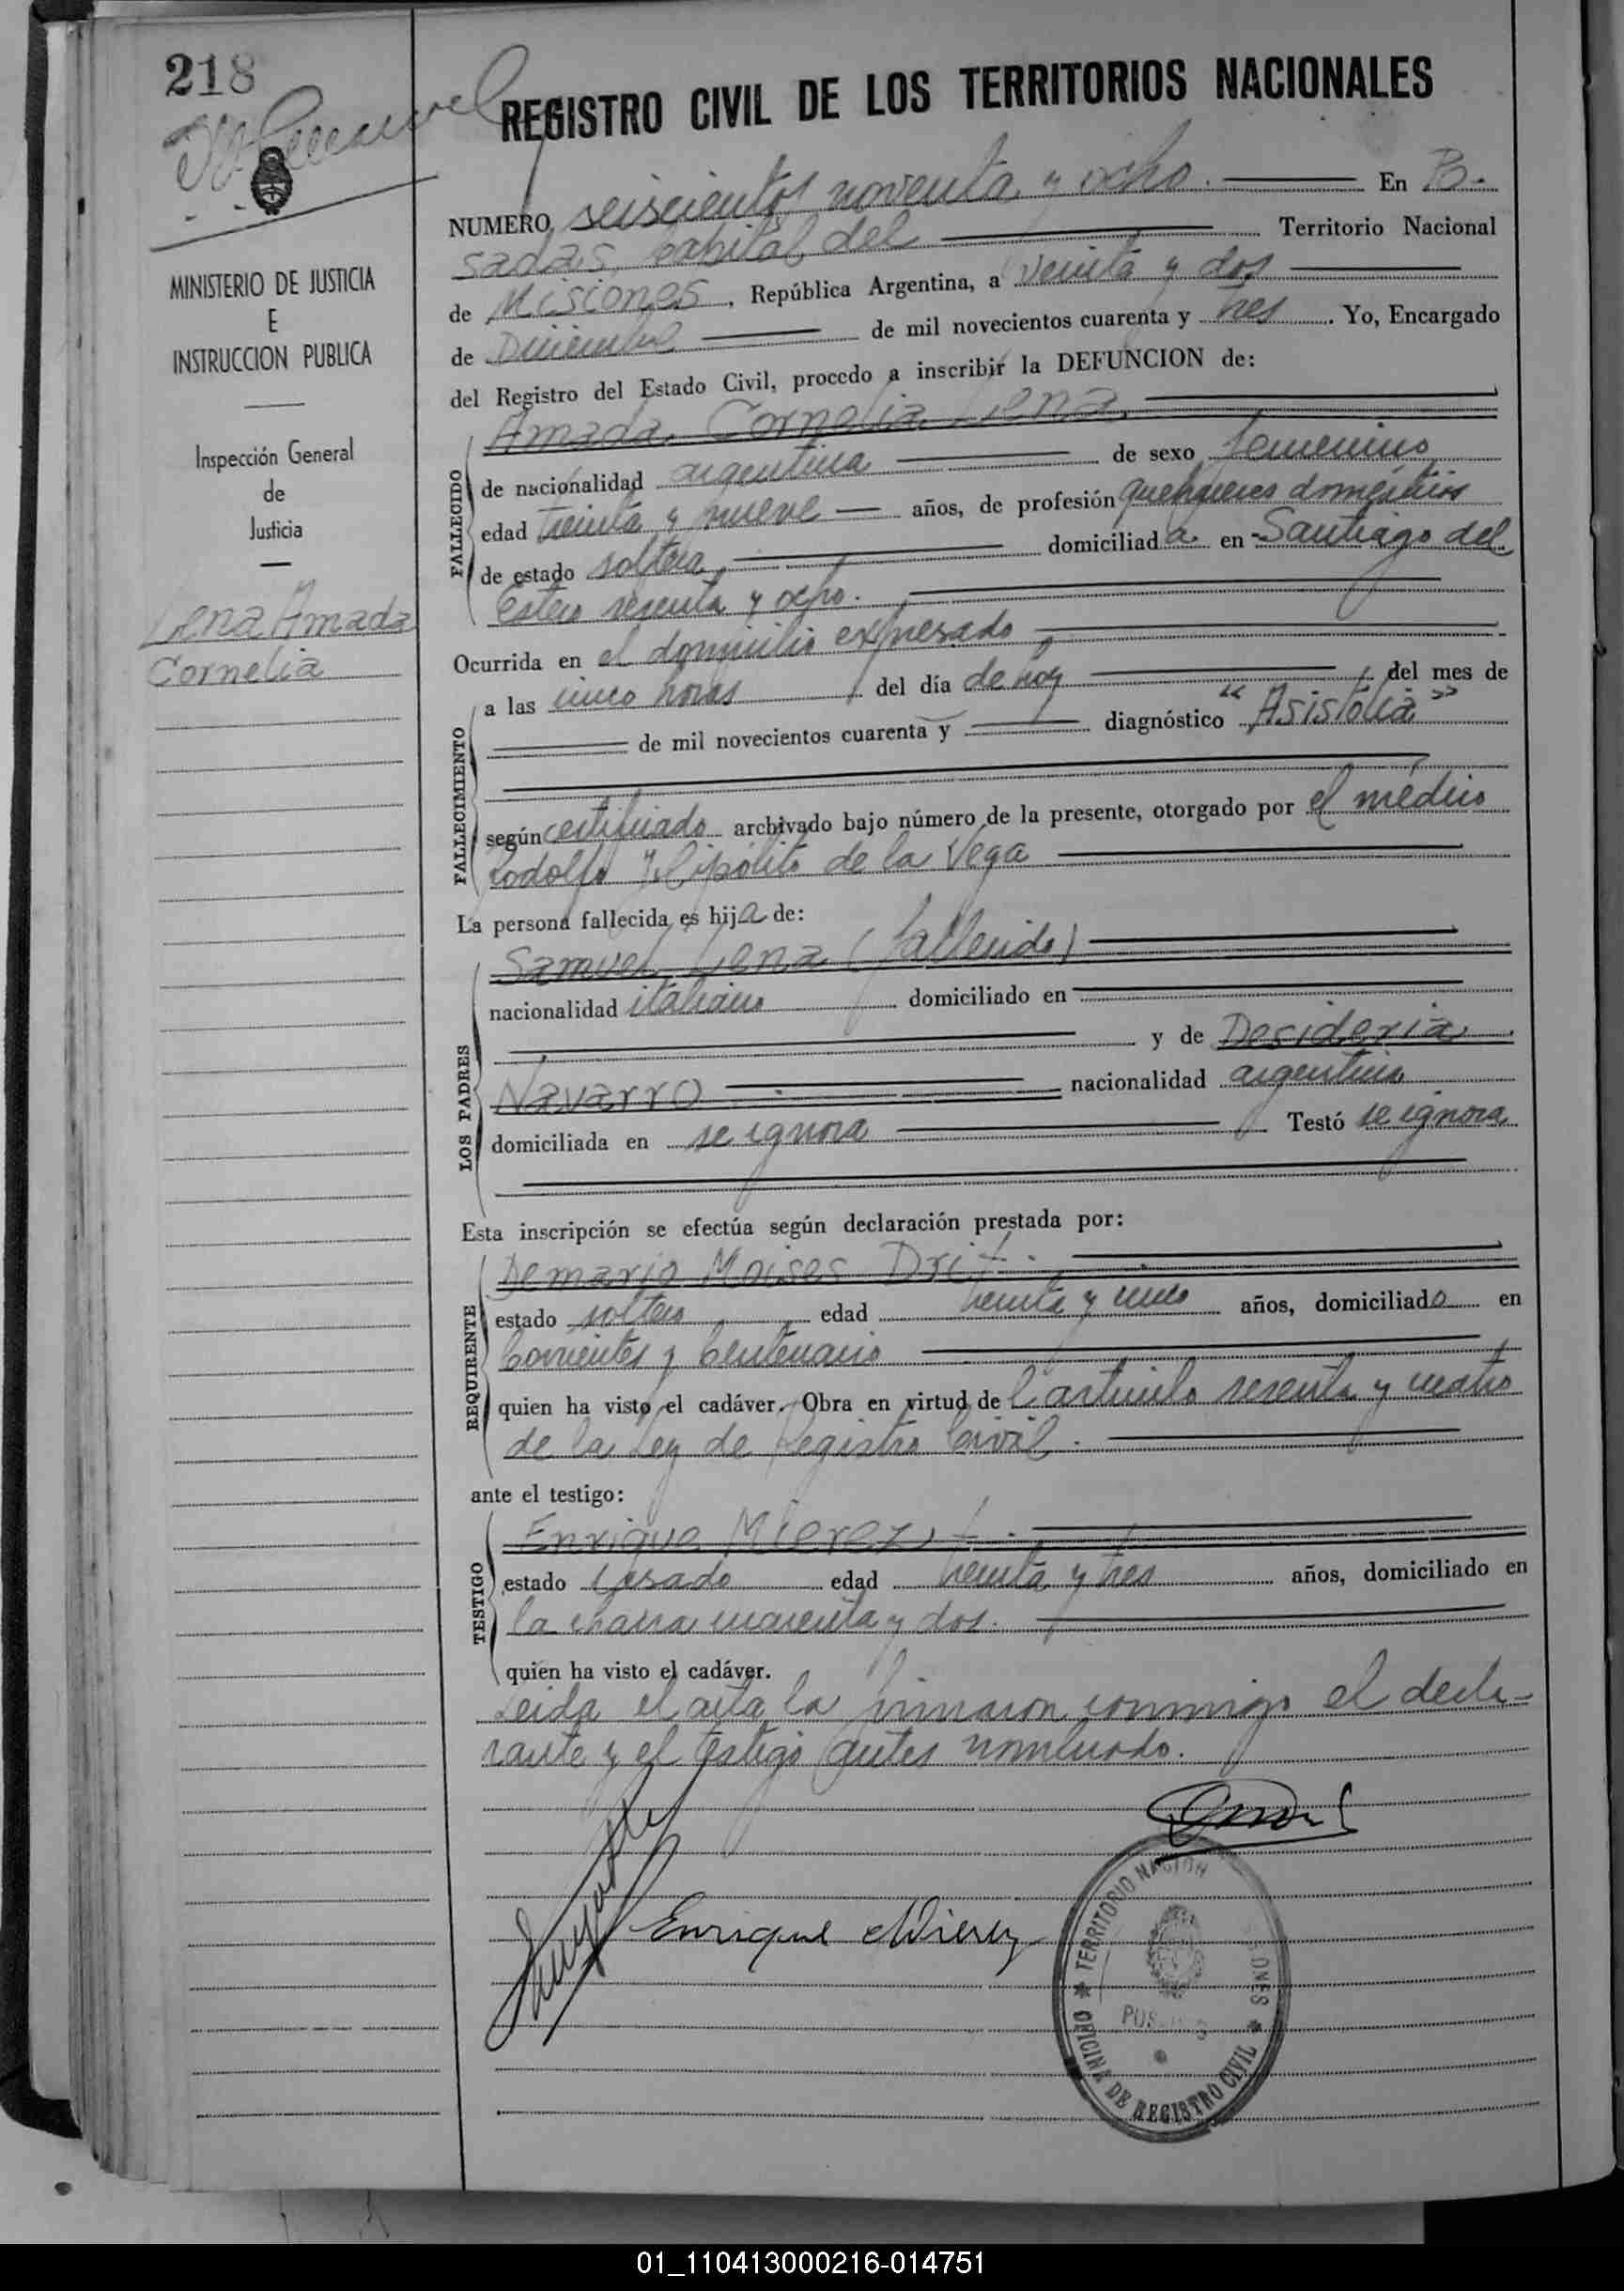 218
REGISTRO CIVIL DE LOS TERRITORIOS NACIONALES
MINISTERIO DE JUSTICIA
E
INSTRUCCION PUBLICA
Inspección General
de
Justicia
Lena Amada
Cornelia
NUMERO seiscientos noventa y ocho. En Po-
sadas, capital del Territorio Nacional
de Misiones, República Argentina, a veinte y dos
de Diciembre de mil novecientos cuarenta y tres. Yo, Encargado
del Registro del Estado Civil, procedo a inscribir la DEFUNCION de:
FALLECIDO
Amada Cornelia Lena
de nacionalidad argentina de sexo femenino
edad treinta y nueve años, de profesión quehaceres domésticos
de estado soltera domiciliada en Santiago del
Estero sesenta y ocho.
FALLECIMIENTO
Ocurrida en el domicilio expresado
a las cinco horas del día de hoy del mes de
de mil novecientos cuarenta y diagnóstico "Asistolia"
según certificado archivado bajo número de la presente, otorgado por el médico
Rodolfo Hipólito de la Vega
La persona fallecida es hija de:
LOS PADRES
Samuel Lena (fallecido)
nacionalidad italiano domiciliado en
y de Desideria
Navarro nacionalidad argentina
domiciliada en se ignora Testó se ignora
Esta inscripción se efectúa según declaración prestada por:
REQUIRENTE
Demario Moises Drit
estado soltero edad treinta y cinco años, domiciliado en
Corrientes y Centenario
quien ha visto el cadáver. Obra en virtud del artículo sesenta y cuatro
de la Ley de Registro Civil.
ante el testigo:
TESTIGO
Enrique Mierez
estado casado edad treinta y tres años, domiciliado en
la chacra cuarenta y dos.
quien ha visto el cadáver.
Leída el acta la firmaron conmigo el decla-
rante y el testigo antes nombrado.
Enrique Mierez
OFICINA DE REGISTRO CIVIL
TERRITORIO NACION
01_110413000216-014751